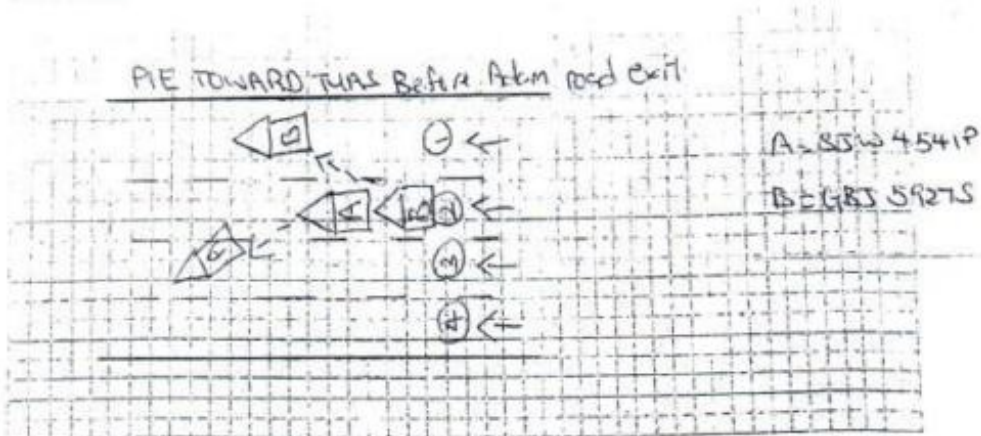 PIE TOWARD TUAS Before Adam road exit
B 1
A = SJW 4541P
A B 2
B = GBJ 5927S
A 3
4